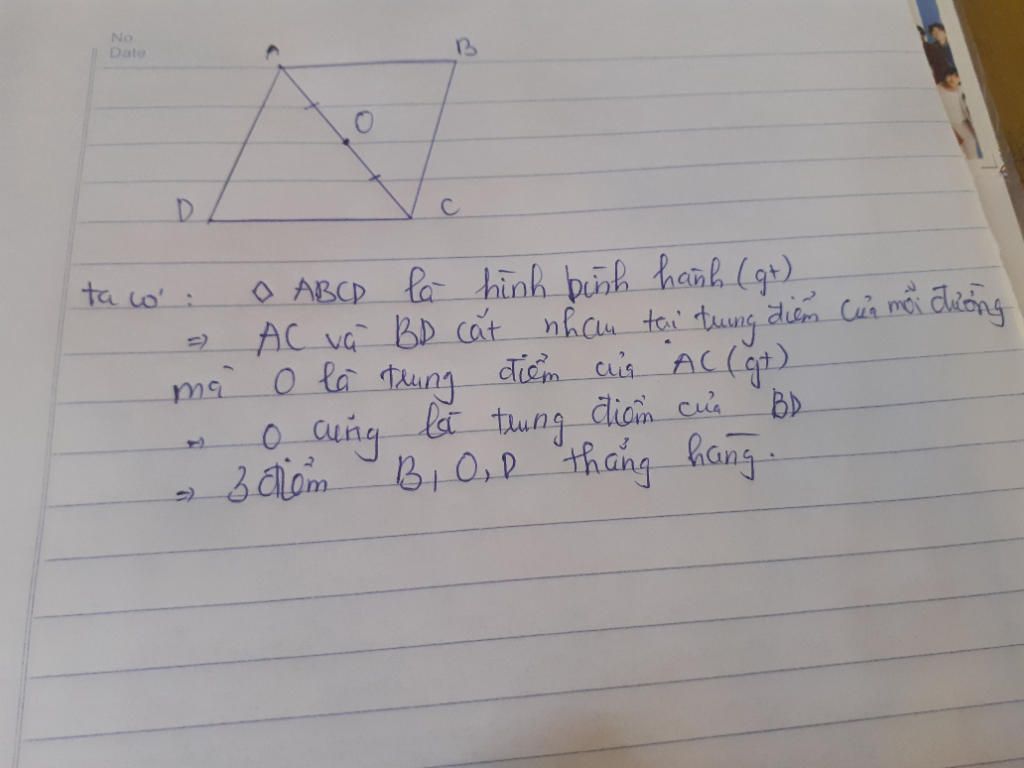 No.
Date
A
B
O
D
C
ta có : ◊ ABCD là hình bình hành (gt)
⇒ AC và BD cắt nhau tại trung điểm của mỗi đường
mà O là trung điểm của AC (gt)
⇒ O cũng là trung điểm của BD
⇒ 3 điểm B, O, D thẳng hàng.